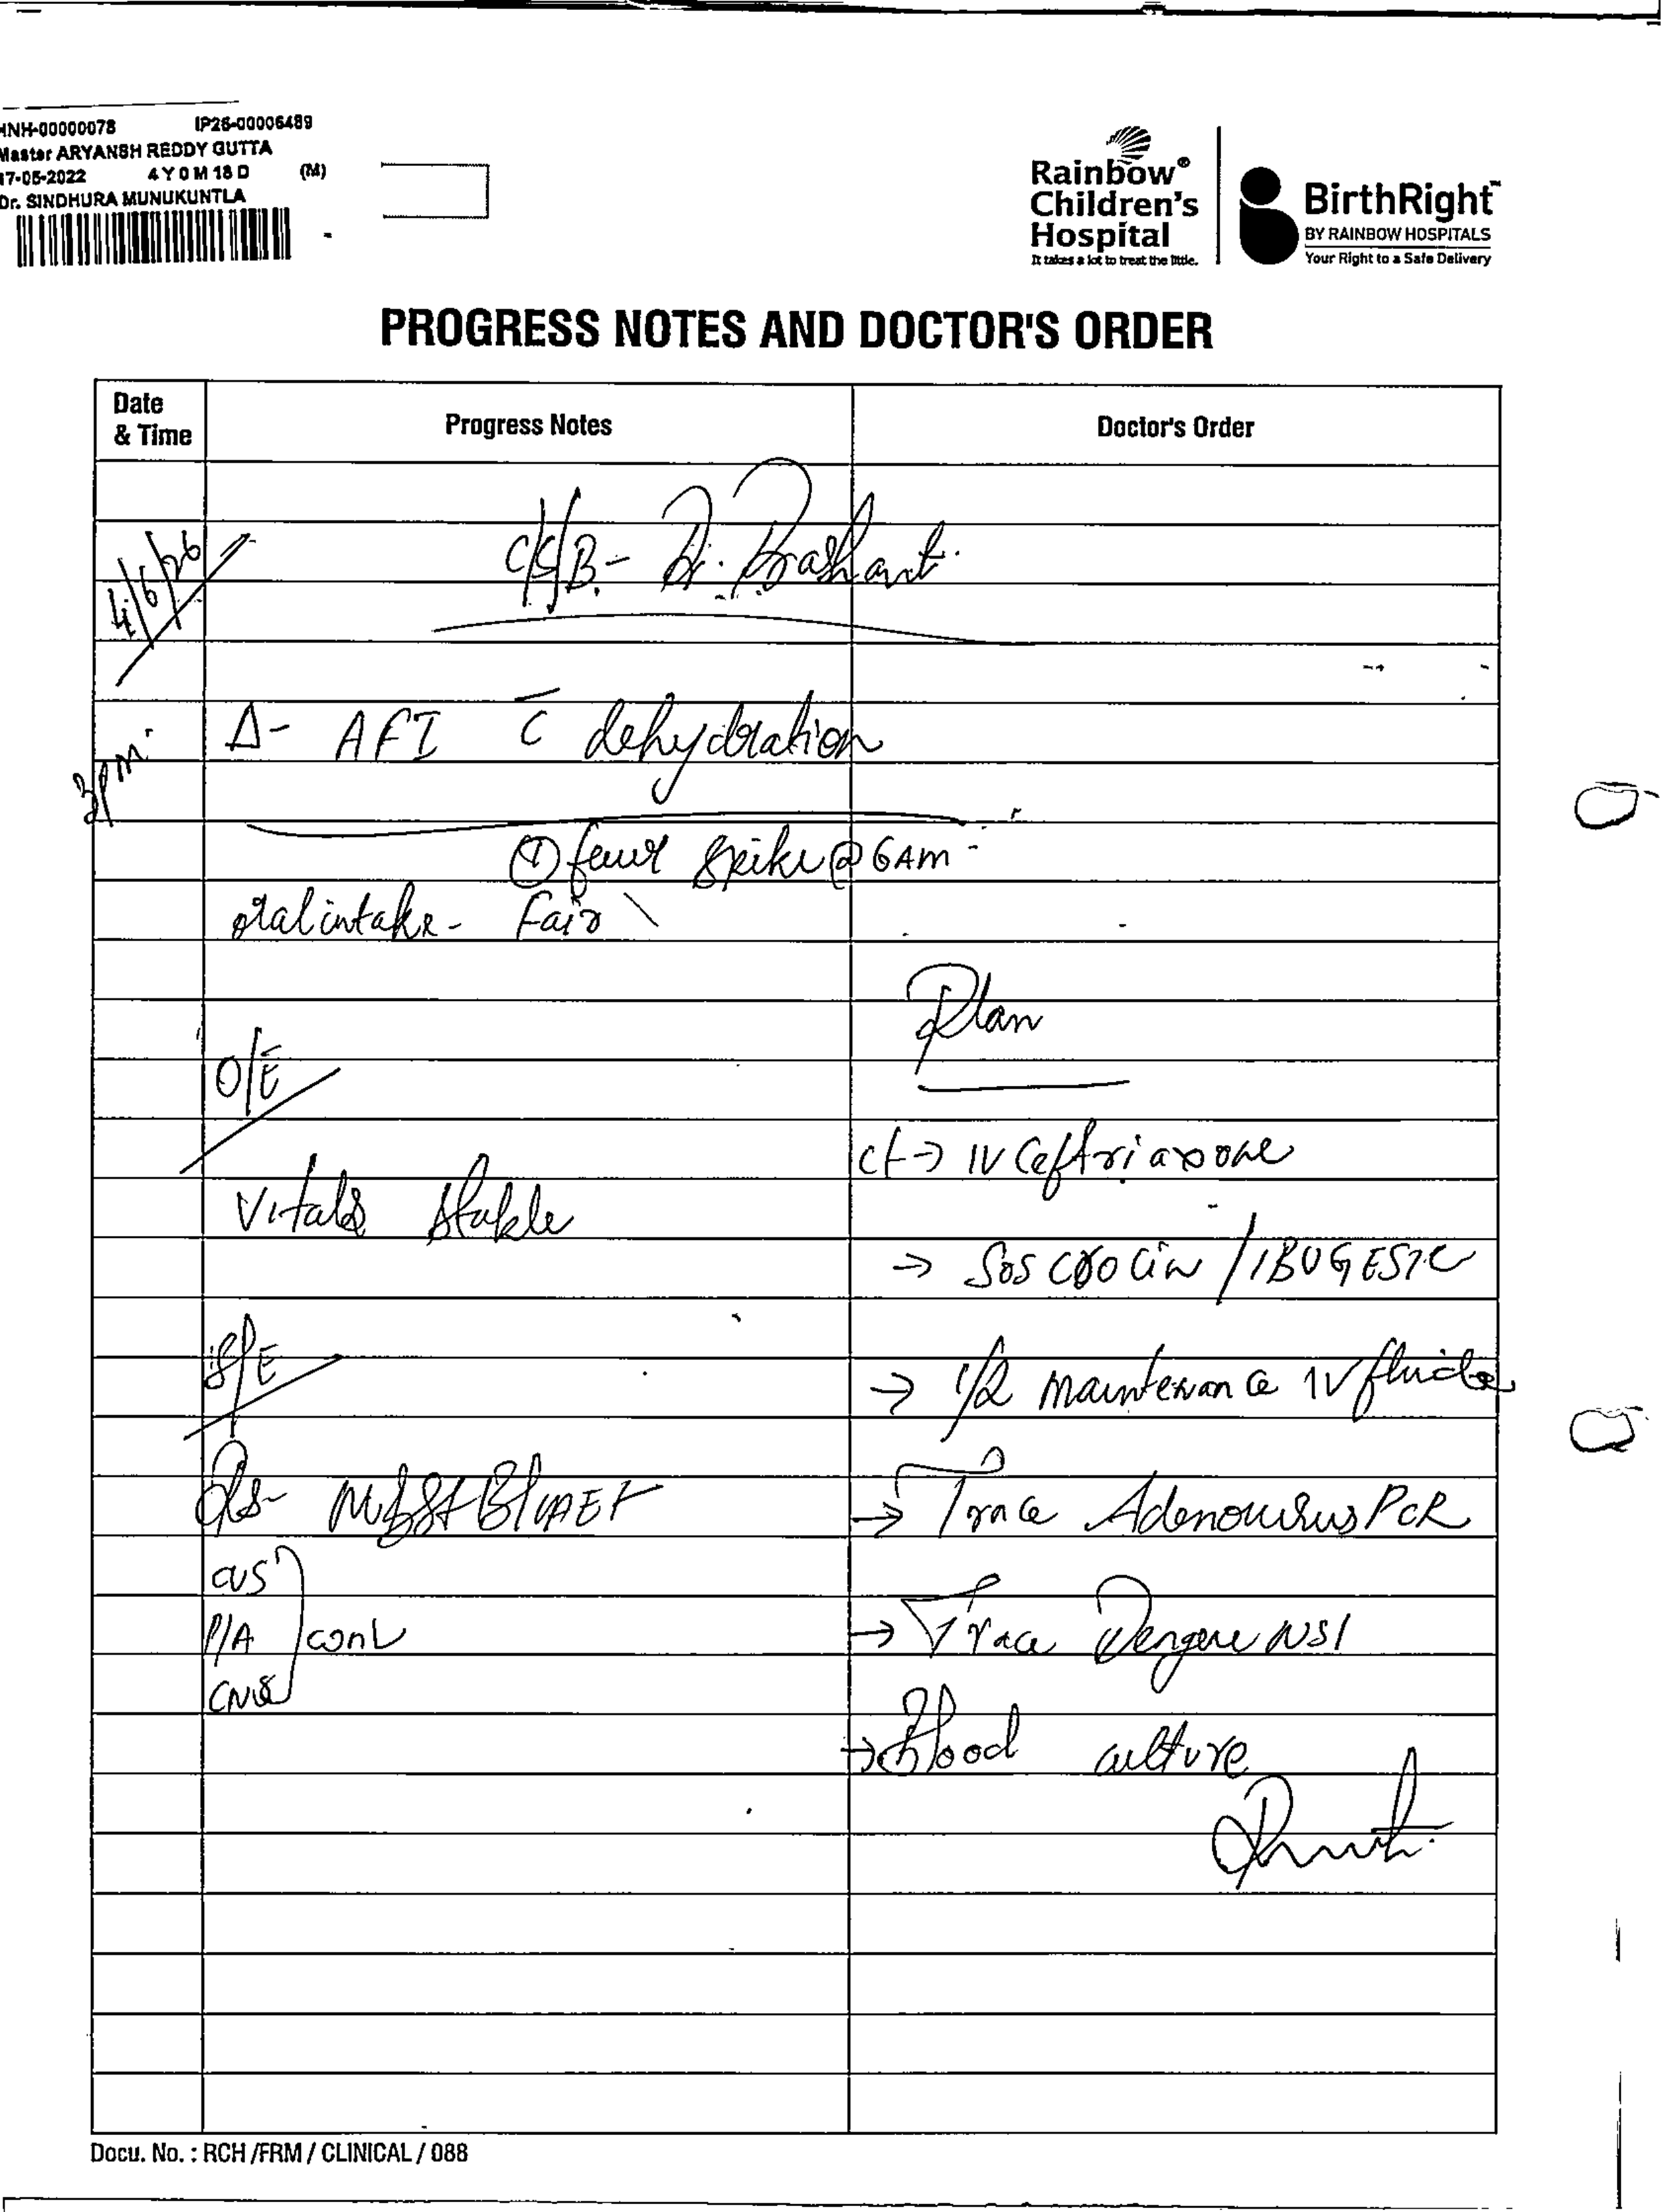 HNH-00000078 IP26-00006489
Master ARYANSH REDDY GUTTA
17-05-2022 4 Y 0 M 18 D (M)
Dr. SINDHURA MUNUKUNTLA
Rainbow®
Children's
Hospital
It takes a lot to treat the little.
BirthRight™
BY RAINBOW HOSPITALS
Your Right to a Safe Delivery
PROGRESS NOTES AND DOCTOR'S ORDER
Date & Time Progress Notes Doctor's Order
4/6/26 C/S/B- Dr. Prashant.
3pm. Δ- AFI c̄ dehydration
① fever spike @ 6AM
oral intake - Fair
Plan
O/E
ct → IV Ceftriaxone
Vitals stable
→ SOS crocin / IBUGESIC
S/E
→ 1/2 maintenance IV fluids
RS-
→ Trace Adenovirus PCR
CVS
P/A
CNS
→ Trace Dengue NS1
→ Blood culture
Docu. No. : RCH /FRM / CLINICAL / 088